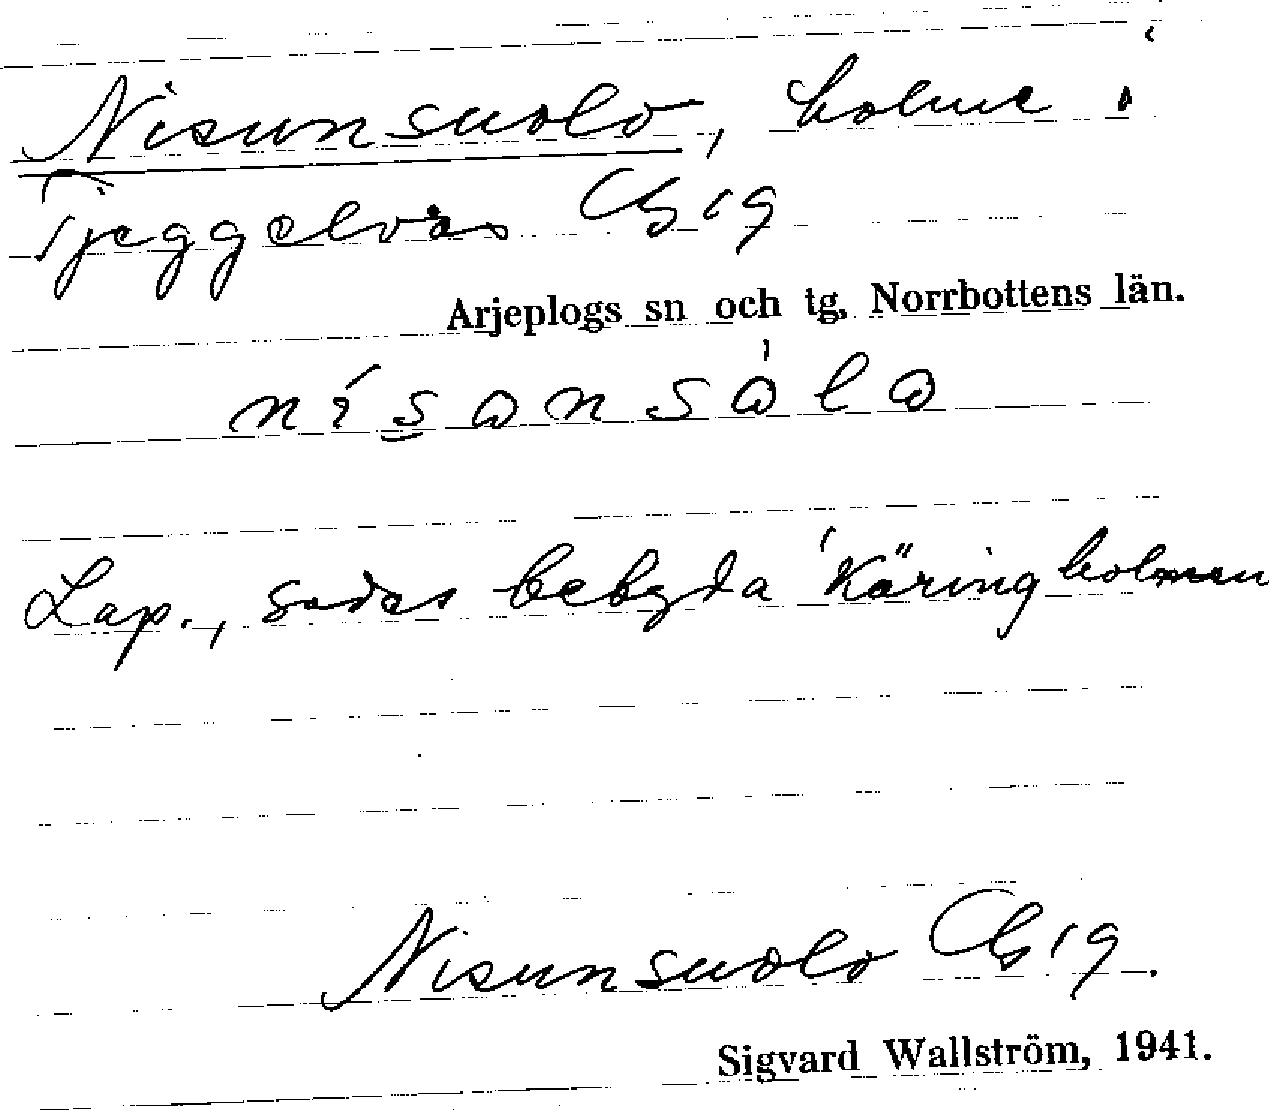 Nisunsuolo, holme i
Tjeggelvas Gb 19
Arjeplogs sn och tg, Norrbottens län.
Lap., sades betyda 'Käringholmen
Nisunsuolo Gb 19.
Sigvard Wallström, 1941.